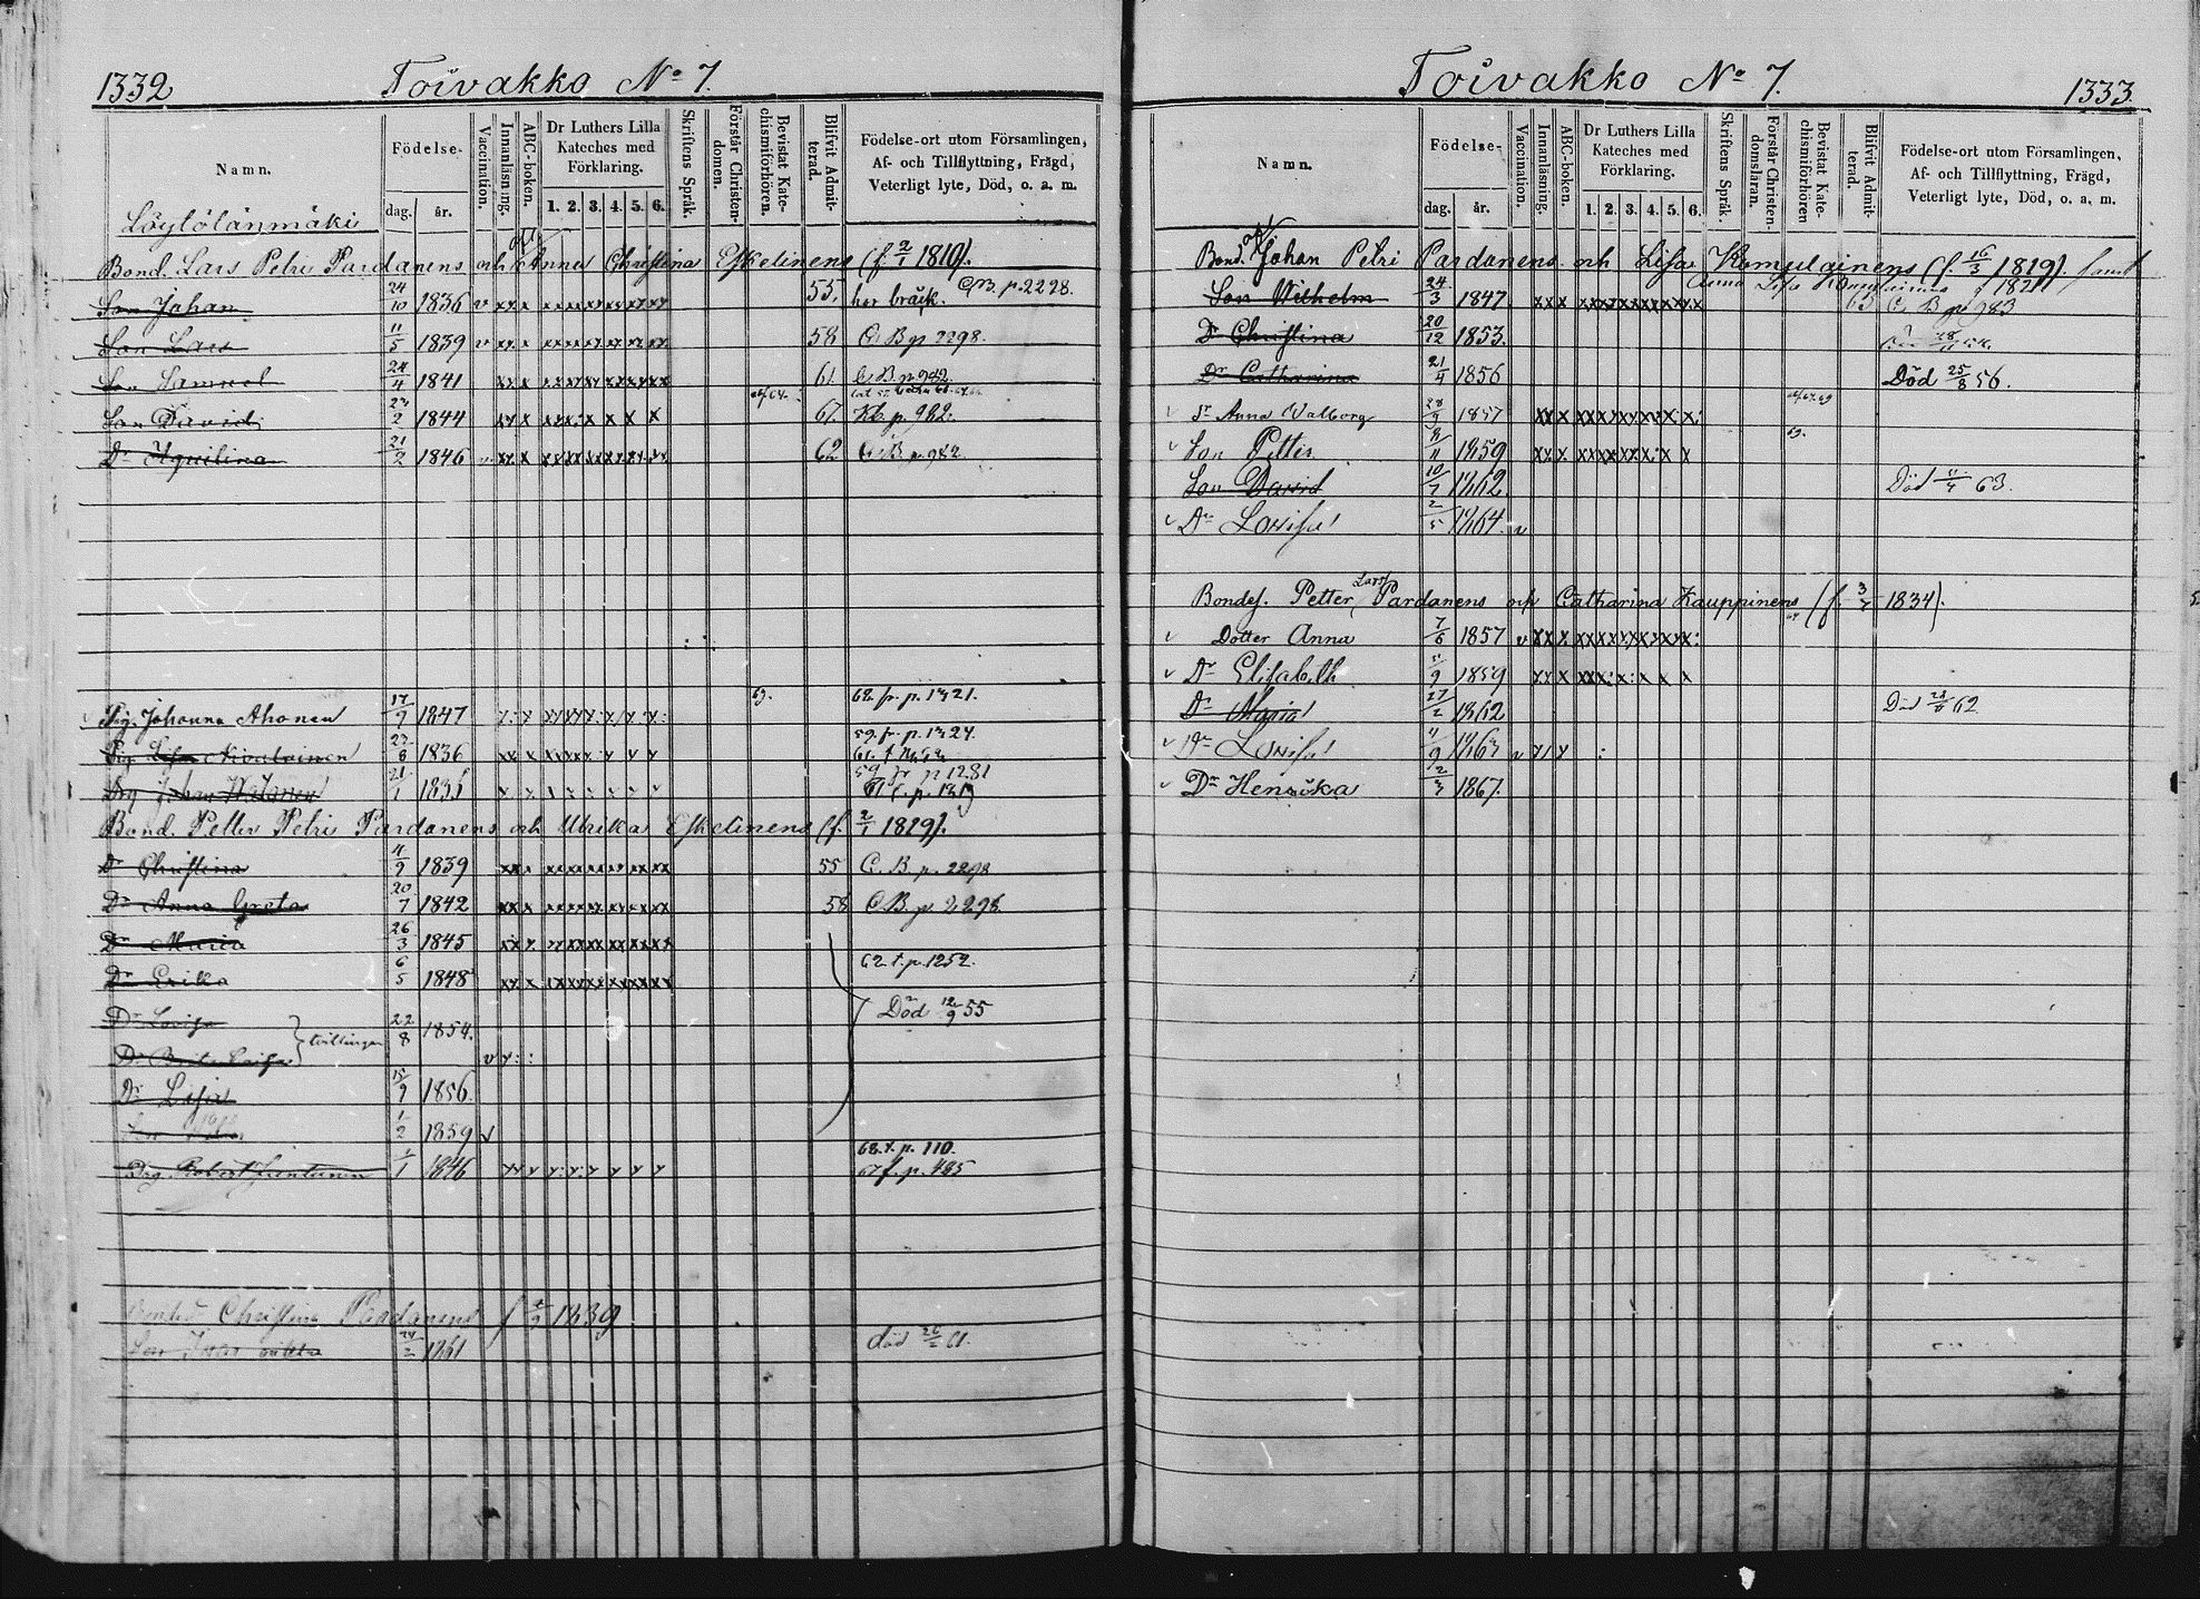 1332
Toivakko No 7.
Namn.
Födelse-
dag. år.
Vaccination.
Innanläsning.
ABC-boken.
Dr Luthers Lilla Kateches med Förklaring.
1. 2. 3. 4. 5. 6.
Skriftens Språk.
Förstår Christendomen.
Bevistat Katechismiförhören.
Blifvit Admitterad.
Födelse-ort utom Församlingen, Af- och Tillflyttning, Frägd, Veterligt lyte, Död, o. a. m.
Löytölänmäki
Bond. Lars Petri Pardanens och Anna Christina Eskelinens (f. 2/1 1810).
Son Johan 24/10 1836 v 55. har bråck. C.B. p. 2228.
Son Lars 11/5 1839 v 58 C. B p 2298.
Son Samuel 24/4 1841 61. C. B. p. 982.
Son David 2 1844 67. Kb. p. 982.
Dr Aquilina 21/2 1846 62 C. B p. 982.
Pig. Johanna Ahonen 17/9 1847 62. fr. p. 1221.
Pig. Lisa 1836 59. fr. p. 1224.
Drg Johan 21/1 59 fr p 1281
Bond. Petter Petri Pardanens och Ulrika Eskelinens (f. 2/1 1819).
Dr Christina 4/9 1839 55 C. B. p. 2298
Dr Anna Greta 20/7 1842 58 C. B. p. 2298.
Dr Maria 26/3 1845
Dr Erika 6/5 1848 62 t. p. 1252.
Dr Lovisa 22/8 1854. Död 12/9 55
Dr Brita Caisa } tvillingar
Dr Lisa 15/9 1856.
Son 1/2 1859 v
68. t. p. 110.
Drg. Robert 1/1 1846 67 f. p. 485
Christina Pardanens f 4/9 1839
Son 24/2 1861 död 26/2 61.
Toivakko No 7.
1333.
Namn.
Födelse-
dag. år.
Vaccination.
Innanläsning.
ABC-boken.
Dr Luthers Lilla Kateches med Förklaring.
1. 2. 3. 4. 5. 6.
Skriftens Språk.
Förstår Christendomsläran.
Bevistat Katechismiförhören
Blifvit Admitterad.
Födelse-ort utom Församlingen, Af- och Tillflyttning, Frägd, Veterligt lyte, Död, o. a. m.
Bond. Johan Petri Pardanens och Lisa Kumpulainens (f. 16/3 1819).
Son Wilhelm 24/3 1847 63 C. B p 983
Dr Christina 20/12 1853.
Dr Catharina 21/4 1856 Död 25/8 56.
Dr Anna Walborg 28/9 1857
Son Petter 11 1859
Son David 10/7 1862 Död 11/4 63.
Dr Lovisa 2/5 1864. v
Bondes. Petter Lars. Pardanens och Catharina Kauppinens (f. 3/7 1834).
Dotter Anna 7/6 1857 v
Dr Elisabeth 9 1859
Dr Maria 27/2 1862 Död 62
Dr Lovisa 11/9 v
Dr Henrika 2/3 1867.